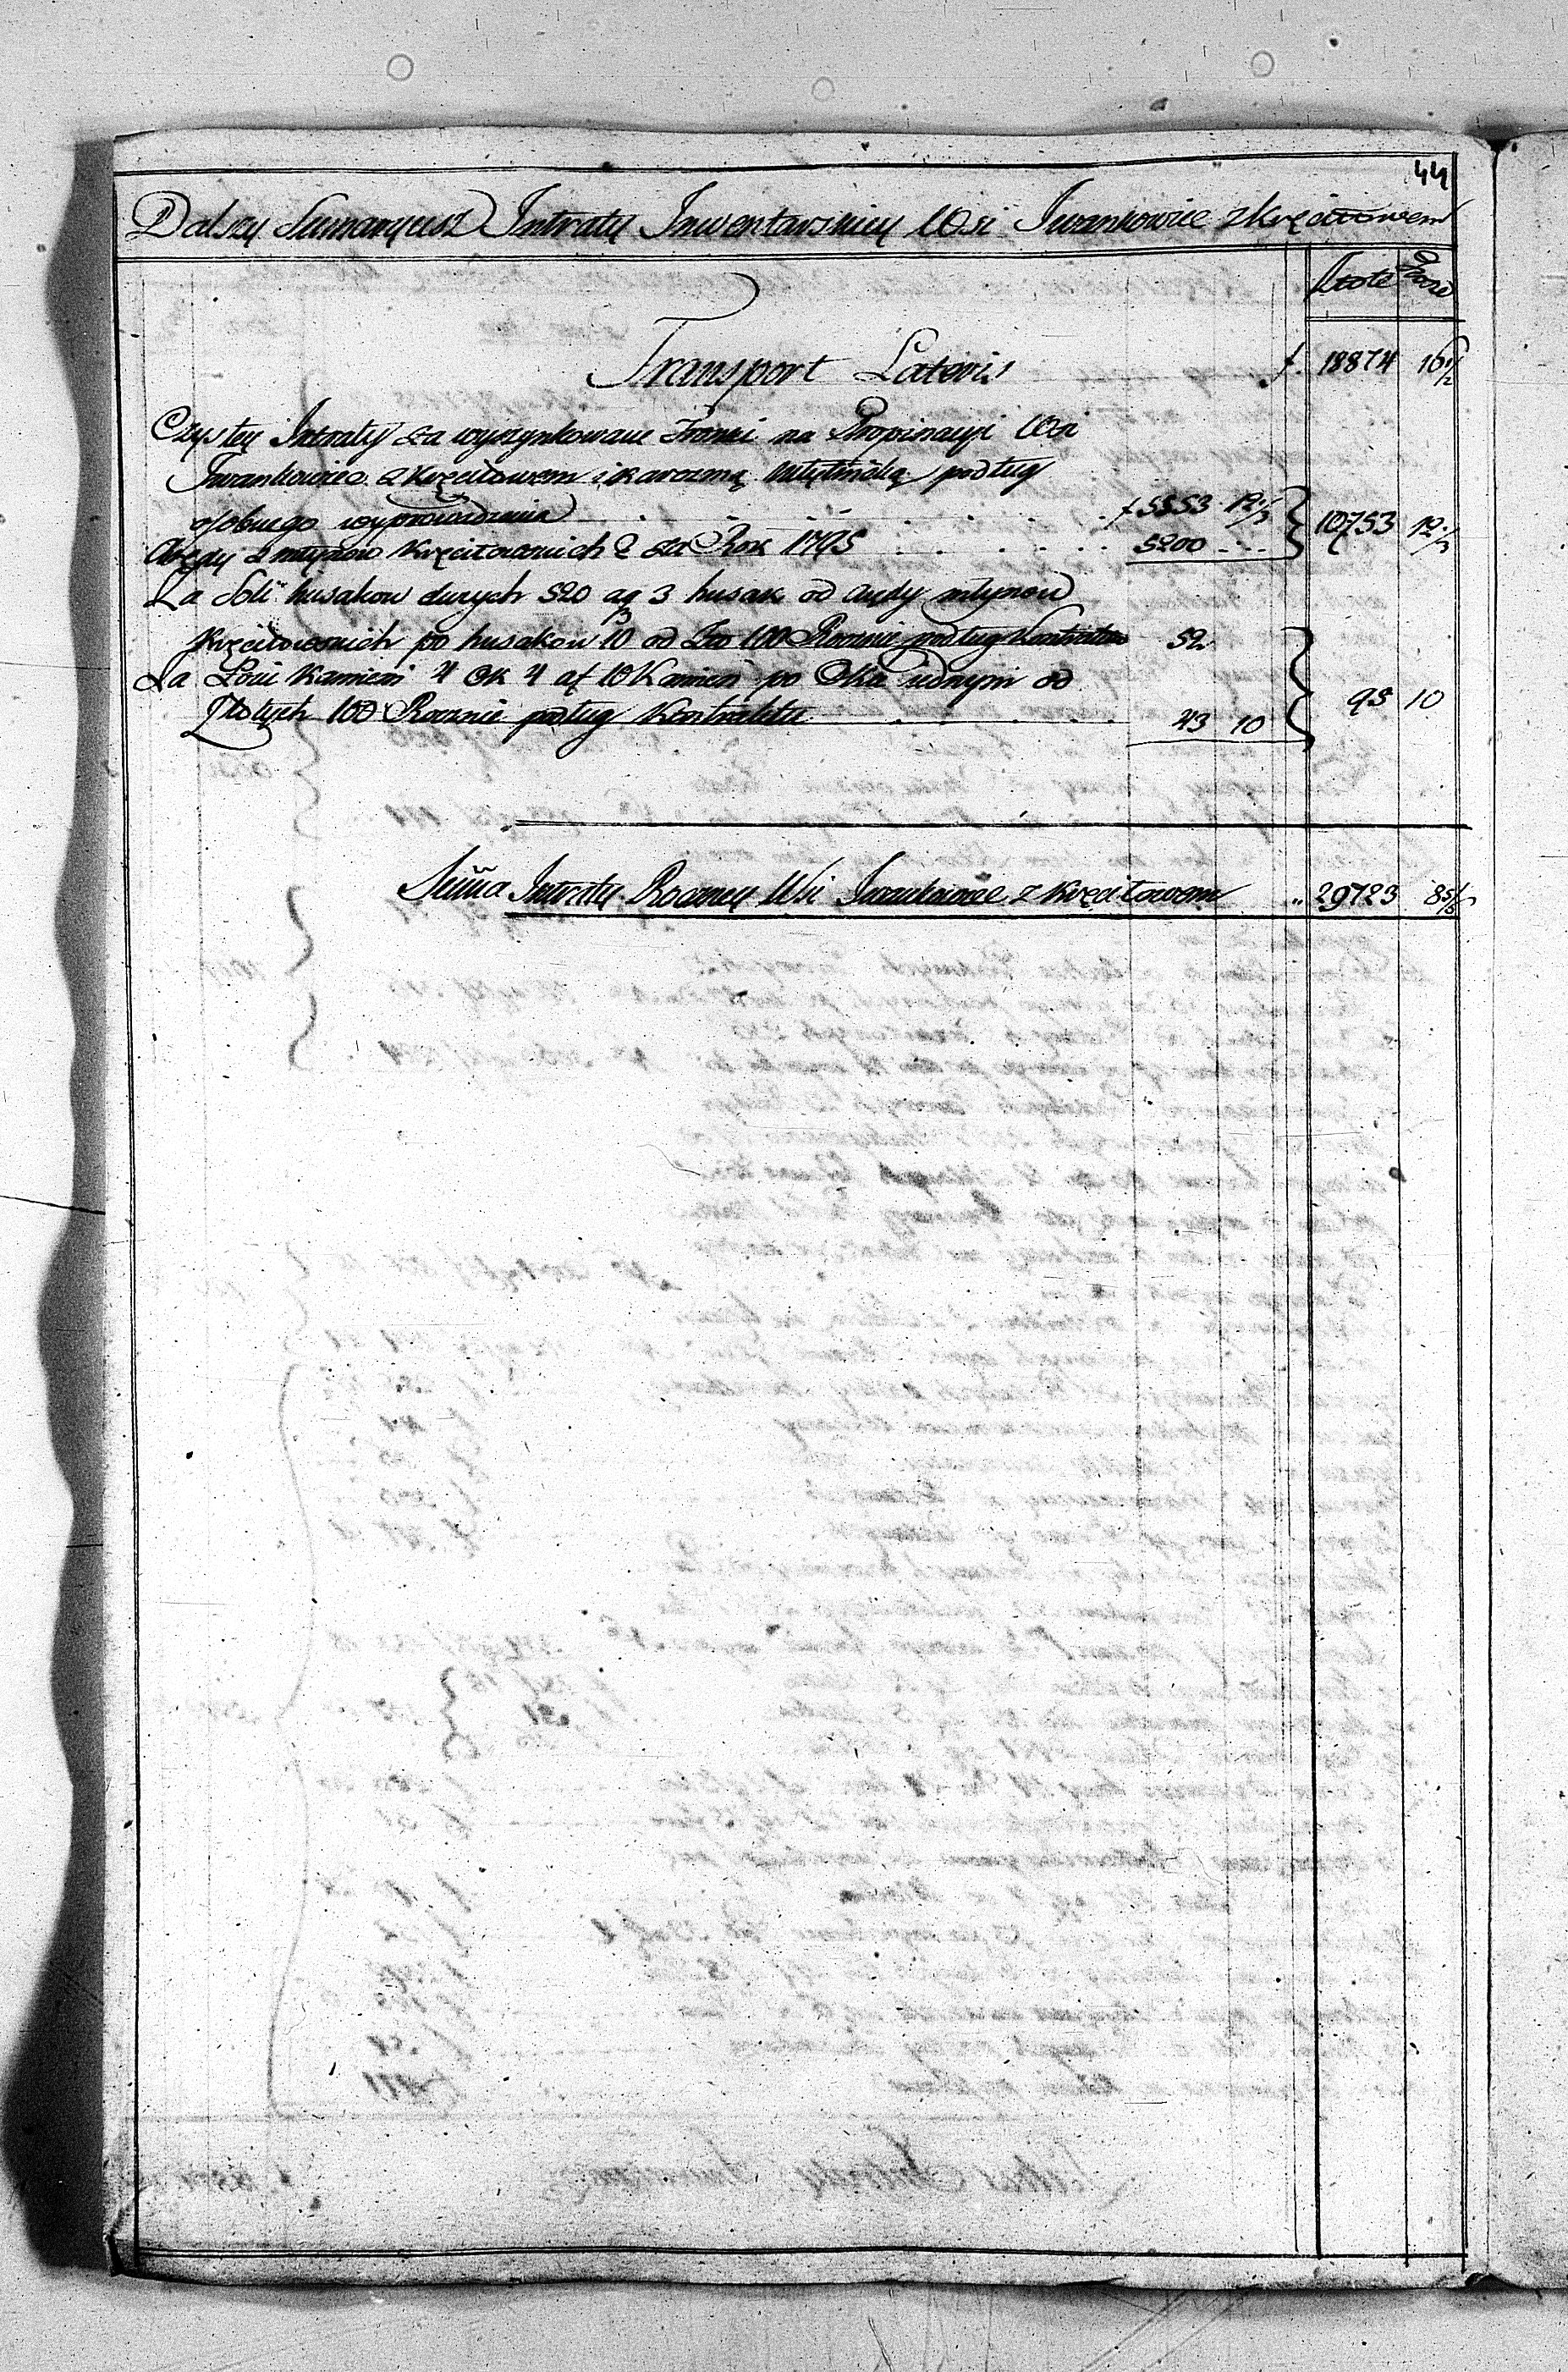 44
Dalszy Sumaryusz Intraty Inwentarskiey Wsi Iwankowiec z Kręciłowem
Złote Grosze
Transport Lateris f. 18874 16 1/2
Czystey Intraty za wyszynkowane Trunki na Propinacyi Wsi
Iwankowiec z Kręciłowem i karczmą podług
osobnego wyprowadzenia f 5553 12 1/3 10753 12 1/3
Arędy z młynów Kręciłowskich 2 za Rok 1795 5200
Za Soli husakow dużych 520 ag 3 husak od Arędy młynow
Kręciłowskich po husakow 10 od Zło 100 Rocznie podług Kontraktu 52
Za Łoiu Kamieni 4 Ok 4 af 10 Kamień po Oka iednym od
Złotych 100 Rocznie podług Kontraktu 43 10 95 10
Sum̃a Intraty Roczney Wsi Iwankowiec z Kręciłowem 29723 8 5/6